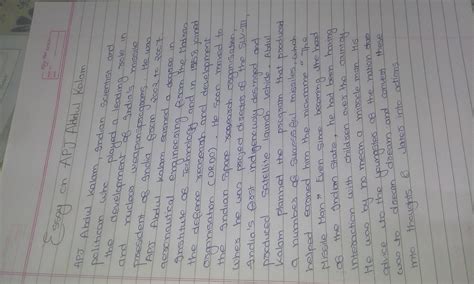 Essay on APJ Abdul Kalam
APJ Abdul Kalam, Indian scientist and
politician who played a leading role in
the development of India's missile
and nuclear weapons programs. He was
president of India from 2002 to 2007.
APJ Abdul Kalam earned a degree in
aeronautical engineering from the Madras
Institute of Technology and in 1958 joined
the defence research and development
organisation (DRDO). He soon moved to
the Indian Space research
where he was project of the SLV-III,
India's first indigenously designed and
produced satellite launch vehicle. Abdul
Kalam planned the program that produced
a number of successful missiles, which
helped earned from the nickname "The
Missile Man". Even since becoming the head
of the Indian State, he had been having
Interaction with children over the country
He was by no mean a miracle man. His
advice to the youngsters of the nation
was to dream dream and convert these
into thoughts & later into actions.